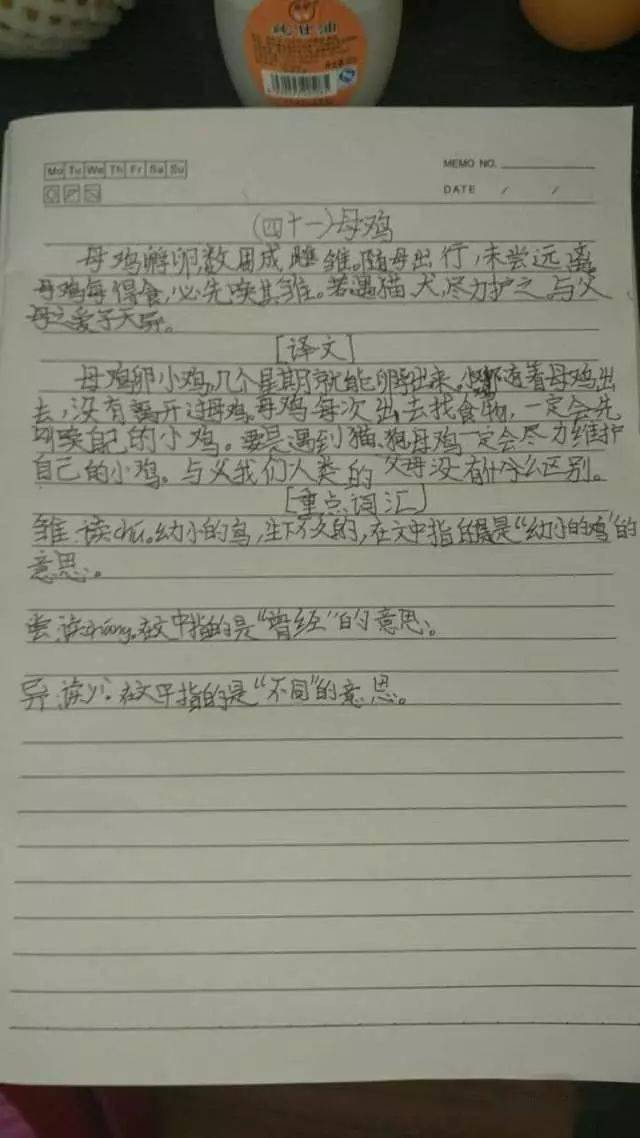 纯甘油
Mo Tu We Th Fr Sa Su
MEMO NO.
DATE / /
(四十一)母鸡
母鸡孵卵,数周成雏。随母出行,未尝远离。
母鸡每得食,必先唤其雏。若遇猫、犬,尽力护之。与父
母之爱子无异。
[译文]
母鸡卵小鸡,几个星期就能孵出来。小鸡都随着母鸡出
去,没有离开过母鸡。母鸡每次出去找食物,一定会先
叫唤自己的小鸡。要是遇到猫、狗,母鸡一定会尽力维护
自己的小鸡。与父我们人类的父母没有什么区别。
[重点词汇]
雏:读chú。幼小的鸟,生下不久的,在文中指的是“幼小的鸡”的
意思。
尝:读cháng。在文中指的是“曾经”的意思。
异:读yì。在文中指的是“不同”的意思。